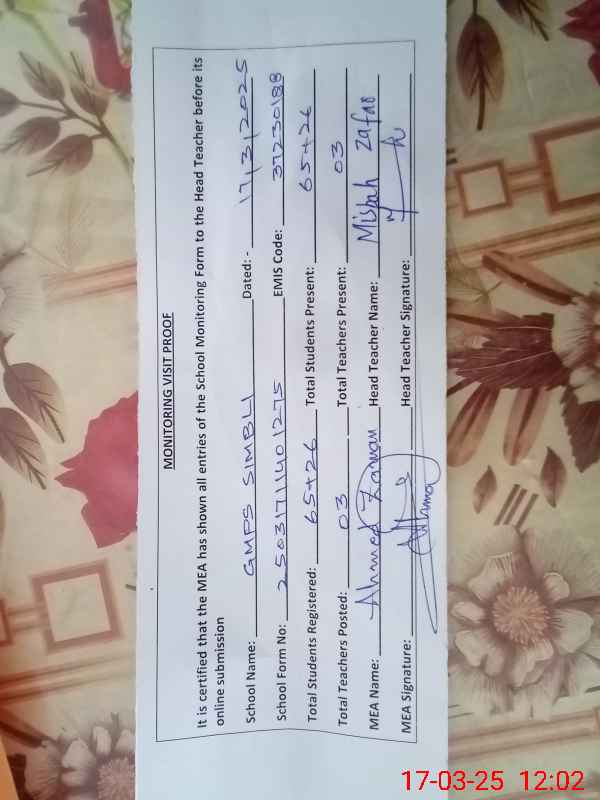 MONITORING VISIT PROOF
It is certified that the MEA has shown all entries of the School Monitoring Form to the Head Teacher before its
online submission
School Name: GMPS SIMBLI Dated: - 17/3/2025
School Form No: 25031711401275 EMIS Code: 37230188
Total Students Registered: 65+26 Total Students Present: 65+26
Total Teachers Posted: 03 Total Teachers Present: 03
MEA Name: Ahmed Zaman Head Teacher Name: Misbah Zafar
MEA Signature: Head Teacher Signature:
17-03-25 12:02